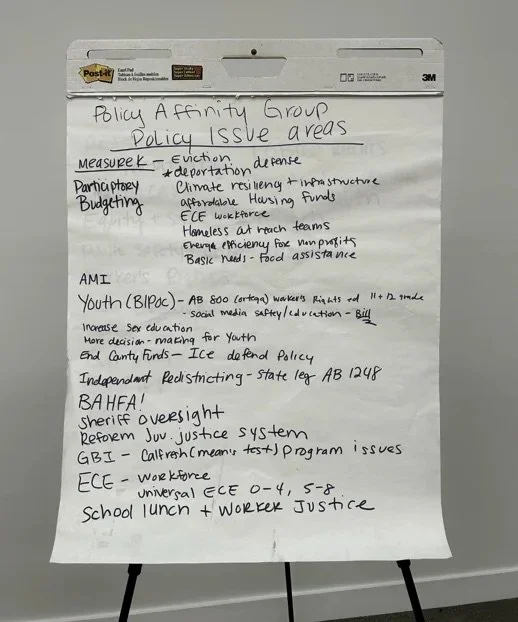 Post-it
3M
Policy Affinity Group
Policy Issue areas
MEASURE K - Eviction defense
* deportation
Participtory Climate resiliency + infrastructure
Budgeting affordable Housing Funds
ECE workforce
Homeless out reach teams
Energy efficiency for nonprofits
Basic needs - Food assistance
AMI
Youth (BIPoc) - AB 800 (ortega) worker's Rights ed 11 + 12 grade
- social media saftey/education - Bill
Increase Sex education
More decision-making for Youth
End County Funds - Ice defend Policy
Independant Redistricting - state leg AB 1248
BAHFA!
Sheriff oversight
Reform Juv. justice system
GBI - Calfresh (means test) program issues
ECE - workforce
universal ECE 0-4, 5-8
School lunch + Worker Justice